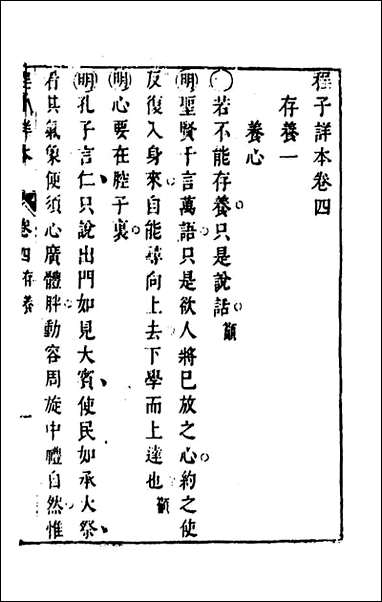 程子詳本卷四
存養一
養心
〇若不能存養只是說話 顓
㊔聖賢千言萬語只是欲人將已放之心約之使
反復入身來自能尋向上去下學而上達也 顓
㊔心要在腔子裏
㊔孔子言仁只說出門如見大賓使民如承大祭
看其氣象便須心廣體胖動容周旋中禮自然惟
程子詳本 卷四存養 一